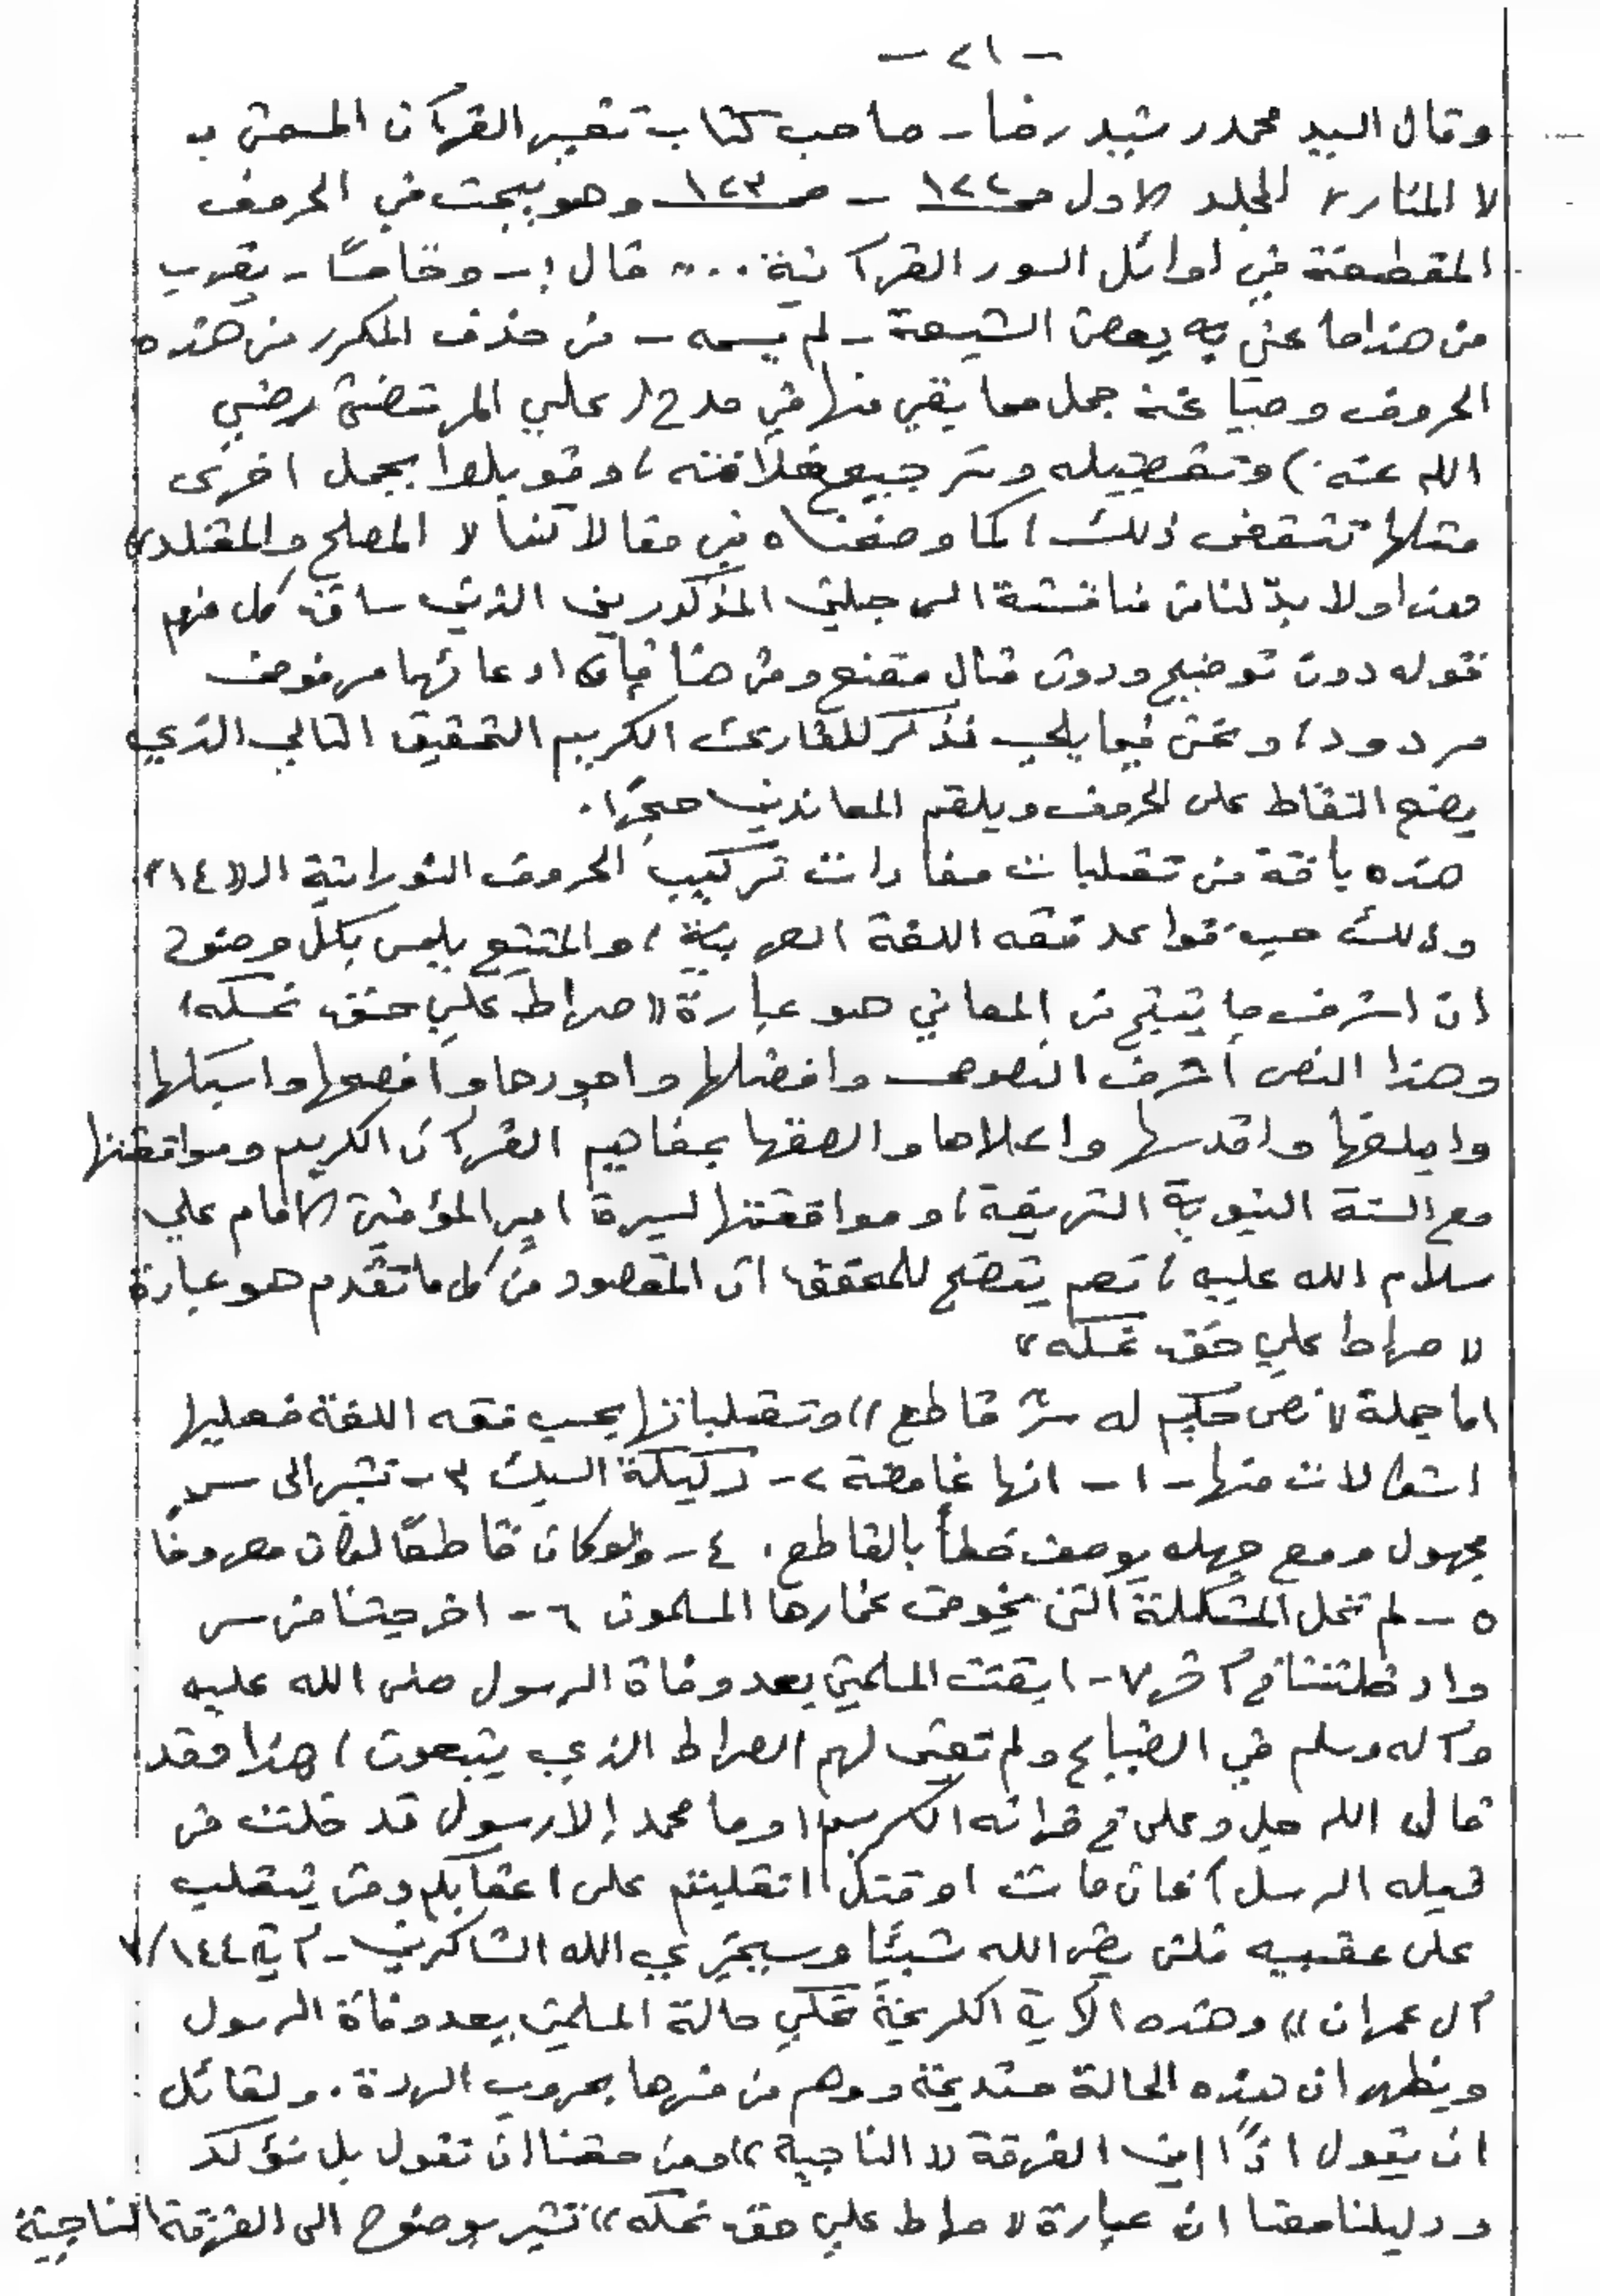 - ٢١ -
وقال السيد محمد رشيد رضا - صاحب كتاب تفسير القرآن المسمى بـ
« المنار » المجلد الاول ص ١٢٢ - ص ١٢٣ وهو يبحث في الحروف
المقطعة في اوائل السور القرآنية ... » قال :- وخامسًا - يقرب
من هذا ما عني به بعض الشيعة - لم يسمه - من حذف المكرر من هذه
الحروف وصياغة جمل مما بقي منها في مدح ( علي المرتضى رضي
الله عنه ) وتفضيله وترجيح خلافته ، وقوبلوا بجمل اخرى
مثلها تنقض ذلك ، كما وضعناه في مقالاتنا « المصلح والمقلد »
هذا ولا بدّ لنا من مناقشة الرجلين المذكورين الذين ساق كل منهم
قوله دون توضيح ودون مثال مقنع ومن هنا فإن ادعائهما مرفوض
مردود ، ونحن فيما يلي نذكر للقارئ الكريم التحقيق التالي الذي
يضع النقاط على الحروف ويلقم المعاندين حجرًا .
هذه باقة من تقلبات مفادات تركيب الحروف النورانية الـ « ١٤ »
وذلك حسب قواعد فقه اللغة العربية ، والمتتبع يلمس بكل وضوح
ان اشرف ما ينتج من المعاني هو عبارة « صراط علي حق نمسكه »
وهذا النص أشرف النصوص وافضلها واجودها وافصحها واسبكها
وابلغها واقدسها واعلاها والصقها بمفاهيم القرآن الكريم وموافقتها
مع السنة النبوية الشريفة ، وموافقتها لسيرة امير المؤمنين الامام علي
سلام الله عليه ، نعم يتضح للمحقق ان المقصود من كل ما تقدم هو عبارة
« صراط علي حق نمسكه »
اما جملة « نص حكيم له سرّ قاطع » وتقلباتها بحسب فقه اللغة فعليها
اشكالات منها - ١ - انها غامضة ٢ - ركيكة السبك ٣ - تشير الى سرٍ
مجهول ومع جهله يوصف خطأً بالقاطع . ٤ - ولو كان قاطعًا لكان معروفًا
٥ - لم تحل المشكلة التي يخوض غمارها المسلمون ٦ - اخرجتنا من سر
وادخلتنا في آخر ٧ - ابقت المسلمين بعد وفاة الرسول صلى الله عليه
وآله وسلم في الضياع ولم تعين لهم الصراط الذي يتبعون ، هذا وقد
قال الله جل وعلى في قرانه الكريم « وما محمد إلا رسول قد خلت من
قبله الرسل أفان مات او قتل انقلبتم على اعقابكم ومن ينقلب
على عقبيه فلن يضر الله شيئًا وسيجزي الله الشاكرين - آية ١٤٤ /
آل عمران » وهذه الآية الكريمة تحكي حالة المسلمين بعد وفاة الرسول
ويظهر ان هذه الحالة مستديمة ووهم من فسرها بحروب الردة . ولقائل
ان يقول اذًا اين الفرقة « الناجية » ومن حقنا ان نقول بل نؤكد
ودليلنا معنا ان عبارة « صراط علي حق نمسكه » تشير بوضوح الى الفرقة الناجية